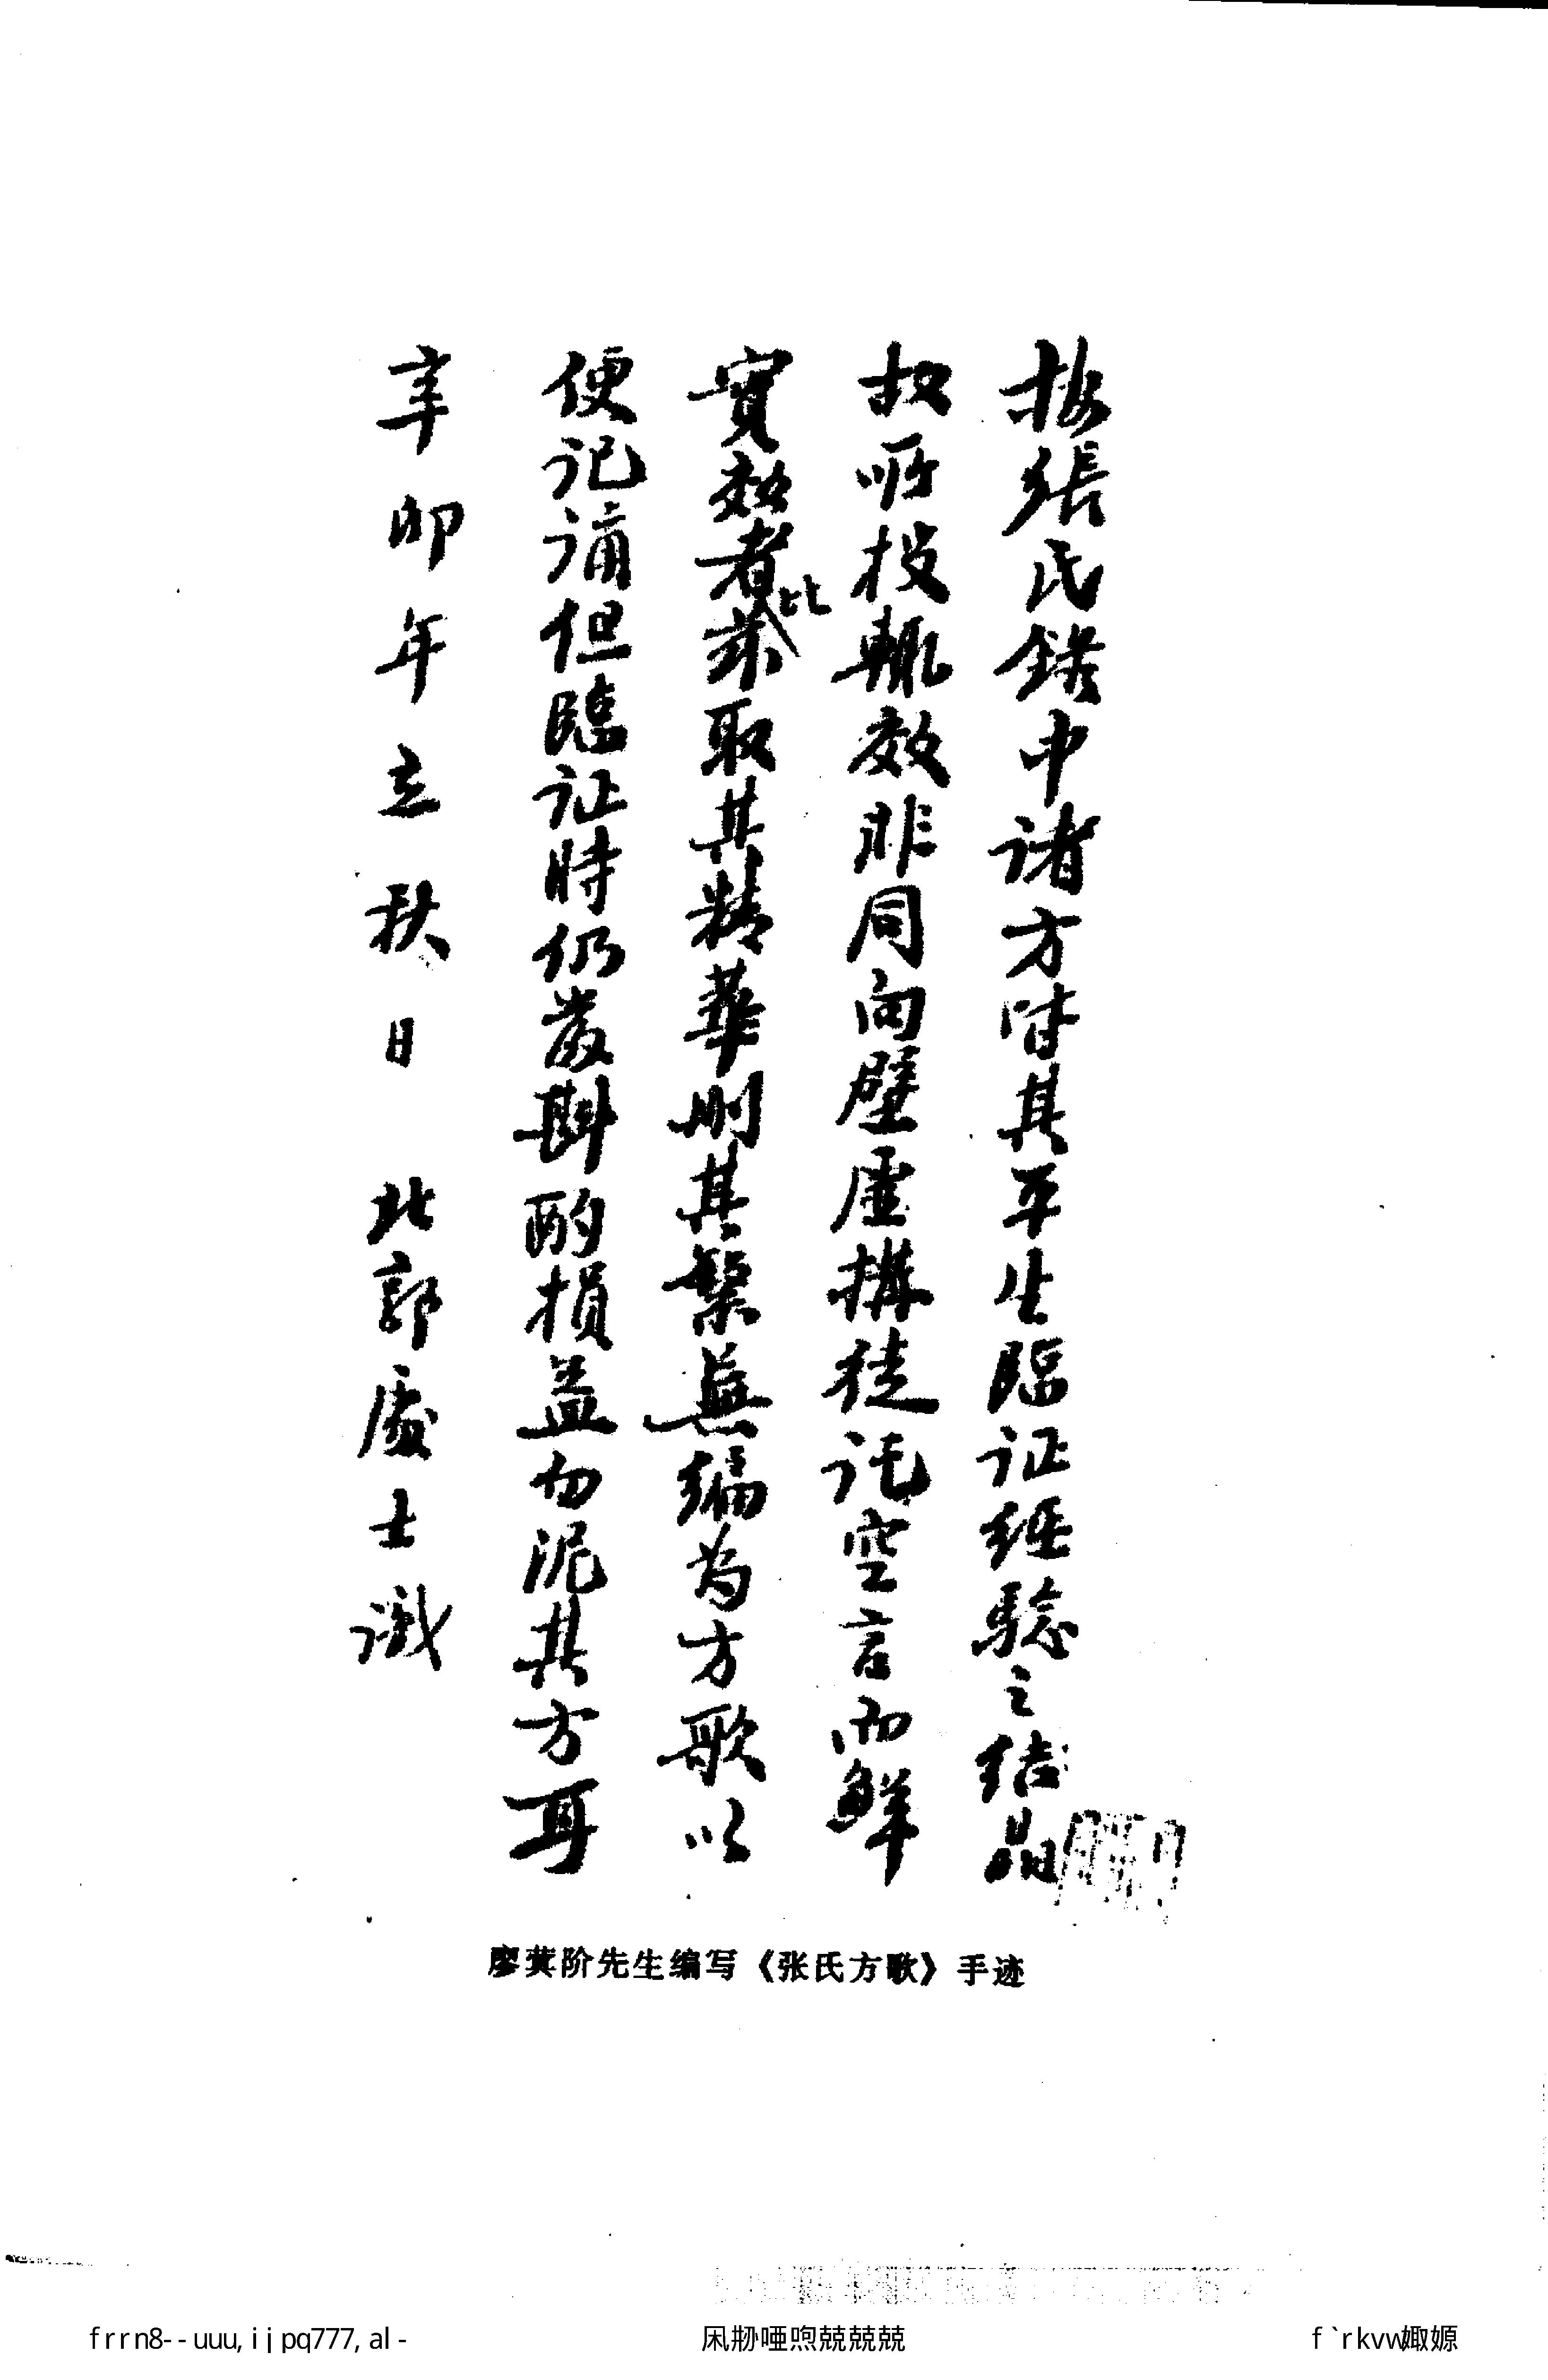 按張氏錄中诸方皆其平生臨证经驗之结晶
故所投輒效非同向壁虛構徒讬空言而鲜
實效者比茲取其精華刪其繁蕪编为方歌以
便记诵但臨证時仍嵗斟酌损益勿泥其方耳
辛卯年立秋日 北郭處士識
廖蓂阶先生编写《张氏方歌》手迹
frrn8--uuu,ijpq777,al-
f`rkvw娵嫄